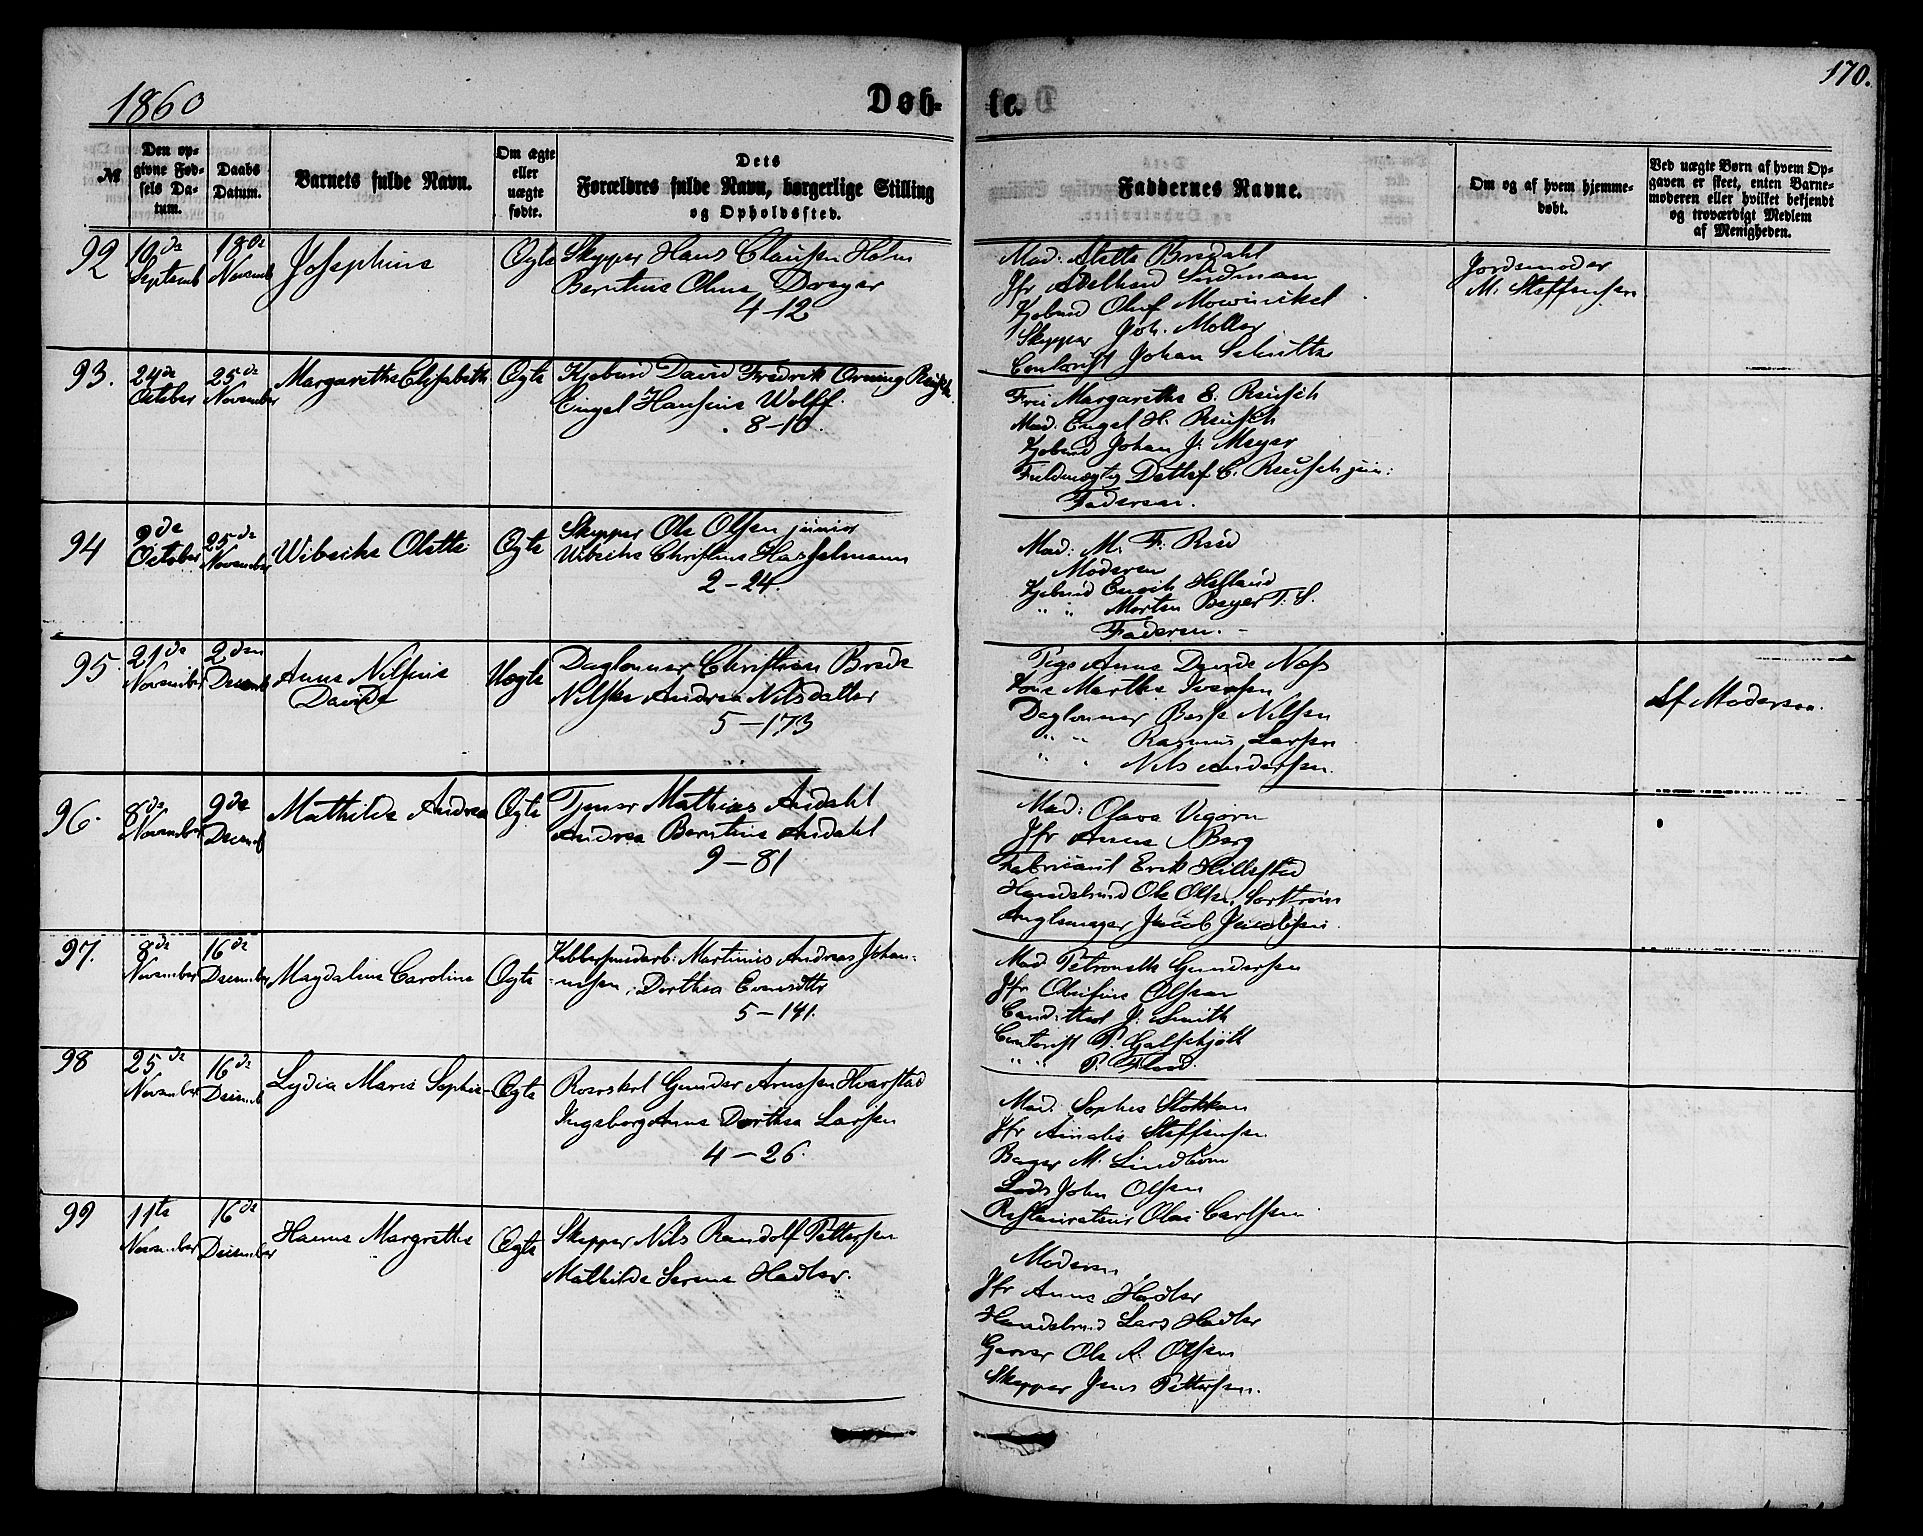 170.
1860
Døb-
te.
№
Den op-
givne Fød-
sels Da-
tum.
Daabs
Datum.
Barnets fulde Navn.
Om ægte
eller
uægte
fødte.
Dets
Forældres fulde Navn, borgerlige Stilling
og Opholdssted.
Faddernes Navne.
Om og af hvem hjemme-
døbt.
Ved uægte Børn af hvem Op-
gaven er skeet, enten Barne-
moderen eller hvilket bekjendt
og troværdigt Medlem
af Menigheden.
92
19de
Septemb
18de
Novemb
Josephine
Ægte
Skipper Hans Clausen Holm
Berntine Oline Dreyer
4-12
Mad: Alette Bredahl
Jfr Adelheid Sudmann
Kjøbmd Oluf Mowinckel
Skipper Joh. Moller
Contorist Johan Schultze
Jordemoder
M. Steffensen
93.
24de
October
25de
November
Margarethe Elisabeth
Ægte
Kjøbmd David Fredrik Orning Reusch
Engel Hansine Wolff
8-10.
Fru Margarethe E. Reusch
Mad. Engel H. Reusch
Kjøbmd Johan J. Meyer
Fuldmægtig Detlef C. Reusch jun:
Faderen.
94
9de
October
25de
November
Wibecke Olette
Ægte
Skipper Ole Olsen junior
Wibecke Christine Hasselmann
2-24.
Mad: M. F. Rued
Moderen
Kjøbmd Henrik Hefland
" " Morten Beyer T. S.
Faderen.
95.
21de
November
2den
Decemb
Anne Nilsine
Davide
Uægte
Daglønner Christian Brede
Nilske Andrea Nilsdatter
5-173
Pige Anne Davide Næss
Kone Marthe Iversen
Daglønner Berje Nilsen
" " Rasmus Larsen
" " Nils Andersen.
Af Moderen.
96.
8de
November
9de
Decemb
Mathilde Andrea
Ægte
Tjener Mathias Andahl
Andrea Berntine Andahl
9-81
Mad: Olava Vigorn
Jfr Anne Berg
Fabricant Erik Hillestad
Handelsmd Ole Olsen Sortrøm
Anglemager Jacob Jacobsen.
97.
8de
November
16de
December
Magdaline Caroline
Ægte
Kobbersmedarb: Martinus Andreas Johan-
-nesen, Dorthea Evensdtr
5-141.
Mad Petronelle Gundersen
Jfr Olufine Olsen
Cand: theol J. Smith
Contorist P. Galschjøtt
" " P. Flood.
98
25de
November
16de
Decemb
Lydia Marie Sophie
Ægte
Roerskrl Gunder Arnesen Hvarstad
Ingeborg Anne Dorthea Larsen
4-26.
Mad: Sophie Stokkan
Jfr Amalie Steffensen
Bager M. Lindbom
Lods John Olsen
Restaurateur Olai Carlsen
99
11te
November
16de
December
Hanne Margrethe
Ægte
Skipper Nils Randolf Pettersen
Mathilde Serine Hadler.
Moderen
Jfr Anne Hadler
Handelsmd Lars Hadler
Garver Ole A. Olsen
Skipper Jens Pettersen.